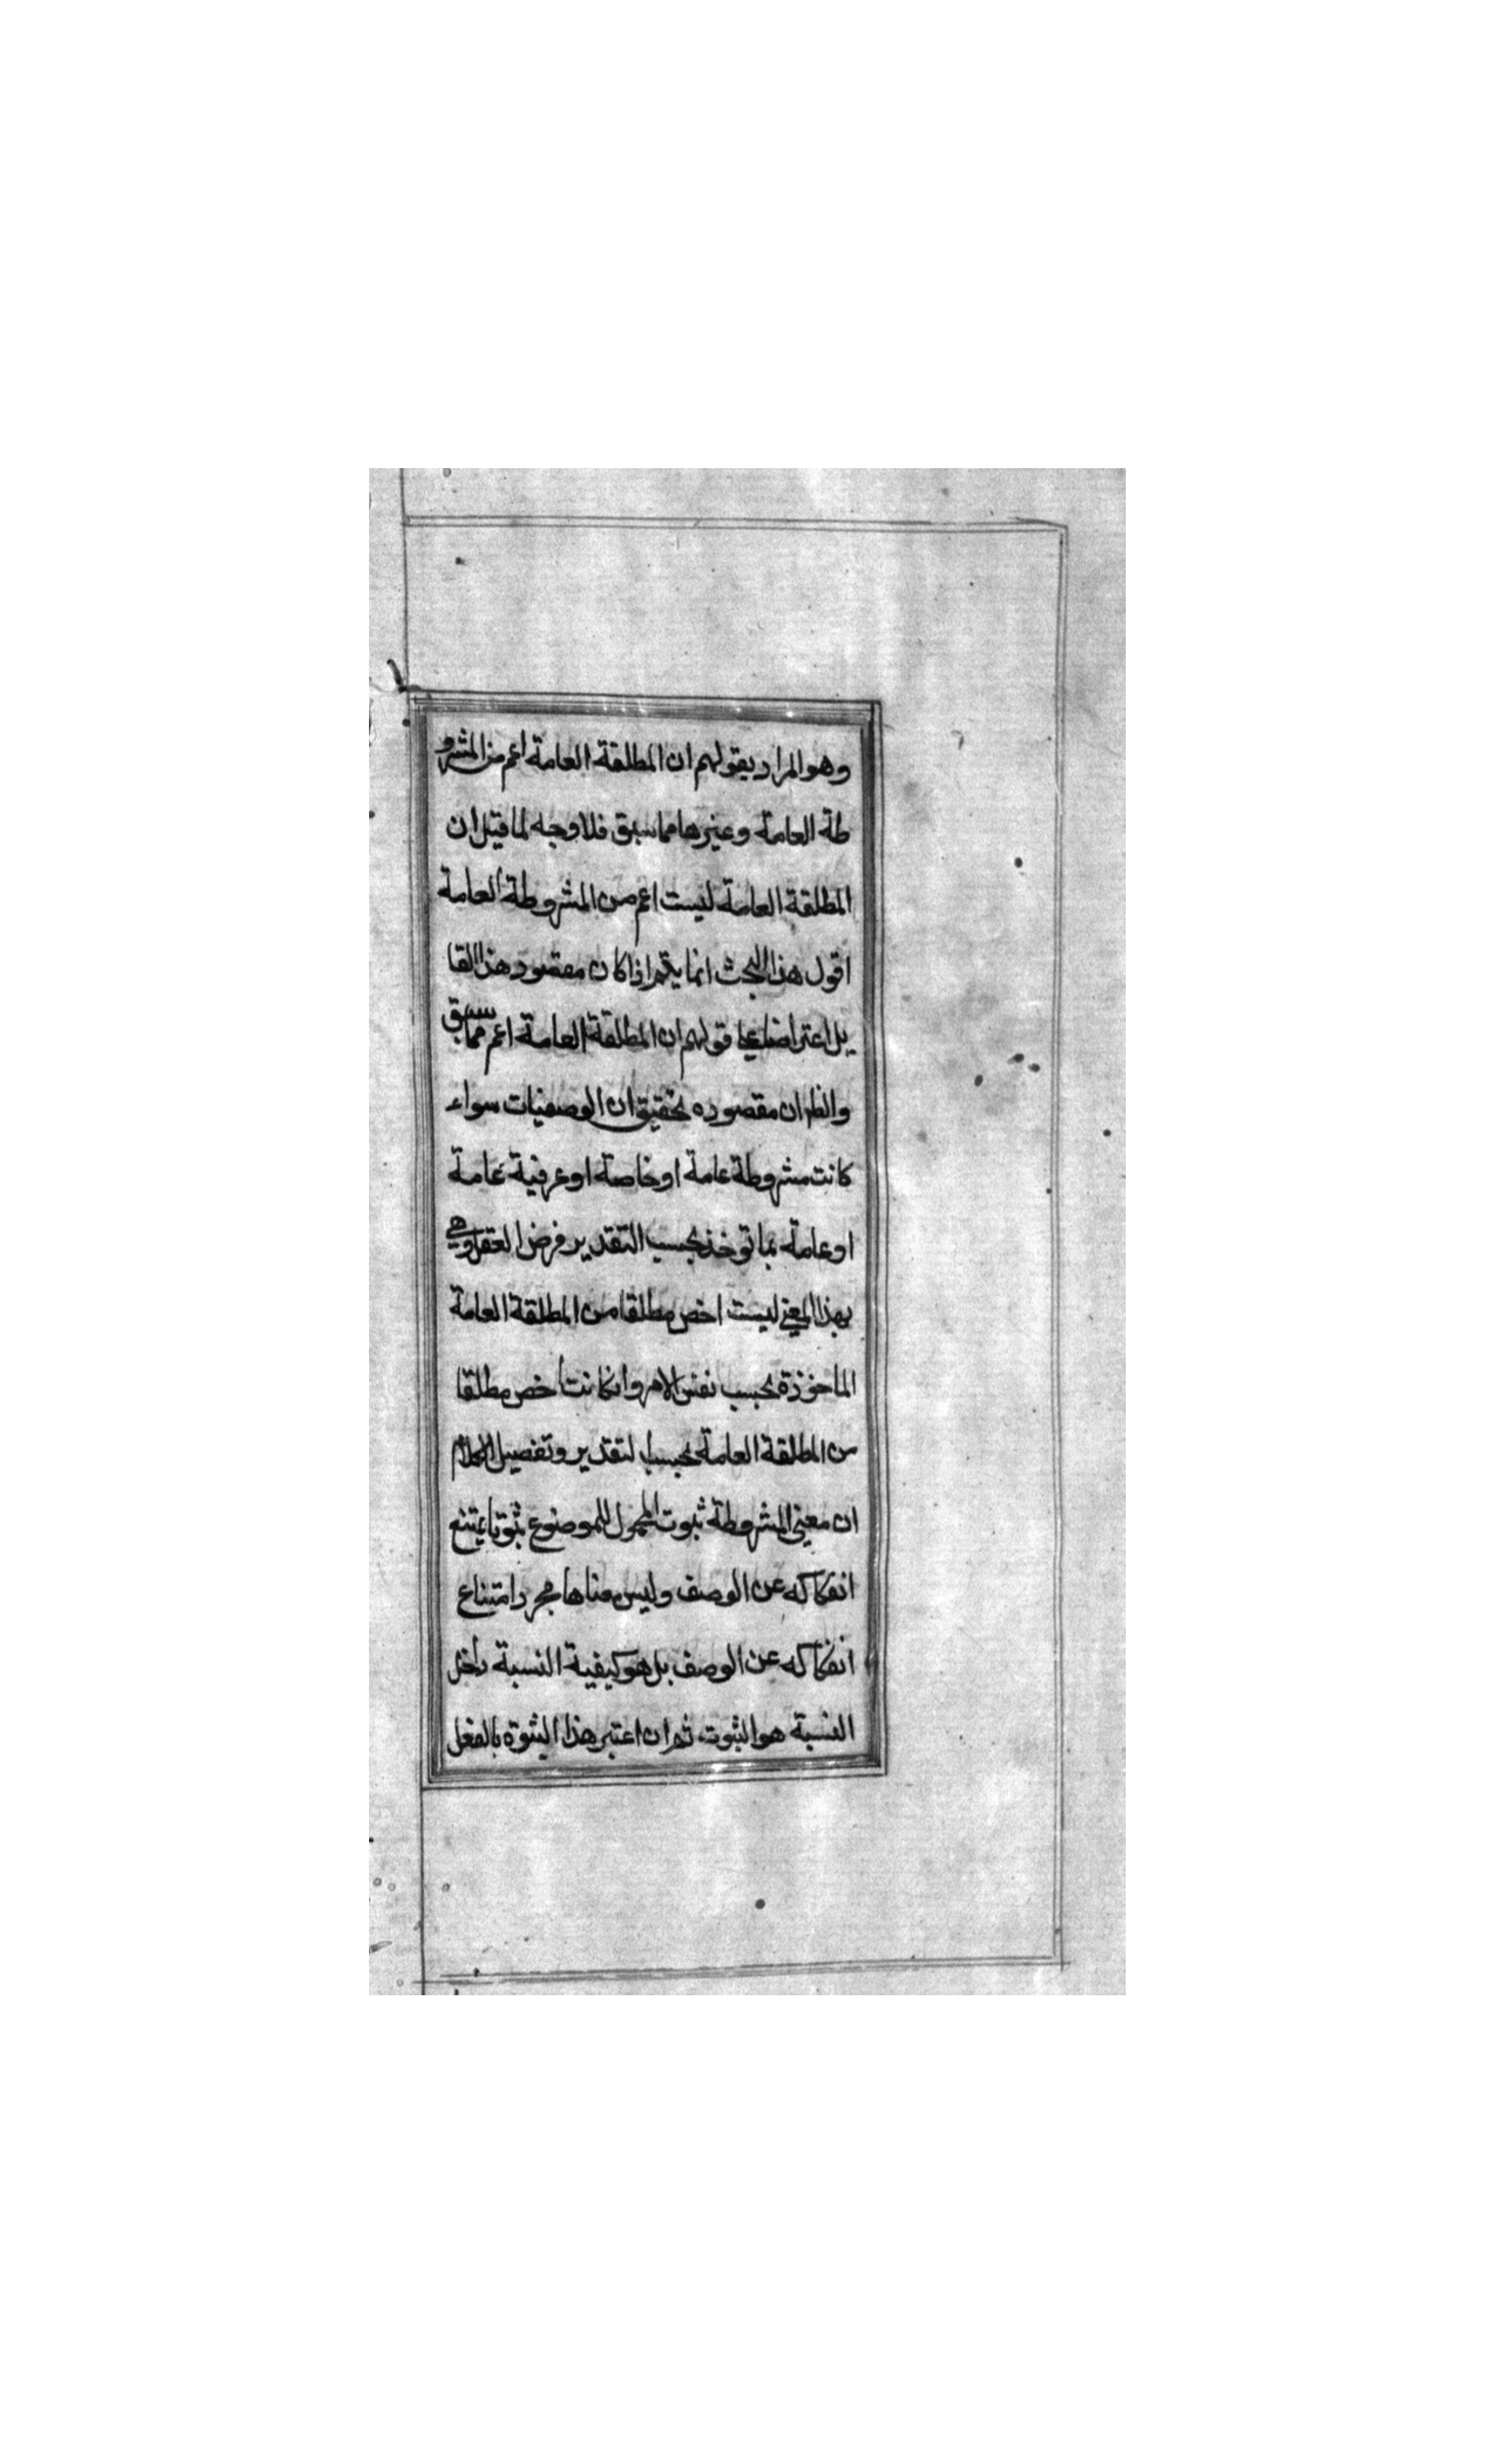 وهو المراد بقولهم ان المطلقة العامة اعم من المشرو
طة العامة وغيرها مما سبق فلا وجه لما قيل ان
المطلقة العامة ليست اعم من المشروطة العامة
اقول هذا البحث انما يتم اذا كان مقصود هذا القا
يل اعتراضا على قولهم ان المطلقة العامة اعم مما سبق
والظ ان مقصوده تحقيق ان الوصفيات سواء
كانت مشروطة عامة او خاصة او عرفية عامة
او عامة بما توخذ بحسب التقدير فرض العقل وهي
بهذا المعنى ليست اخص مطلقا من المطلقة العامة
الماخوذة بحسب نفس الامر وان كانت اخص مطلقا
من المطلقة العامة بحسب التقدير وتفصيل الكلام
ان معنى المشروطة ثبوت المحمول للموضوع ثبوتا يمتنع
انفكاكه عن الوصف وليس معناها مجرد امتناع
انفكاكه عن الوصف بل هو كيفية النسبة داخل
النسبة هو الثبوت ثم ان اعتبر هذا الثبوة بالفعل